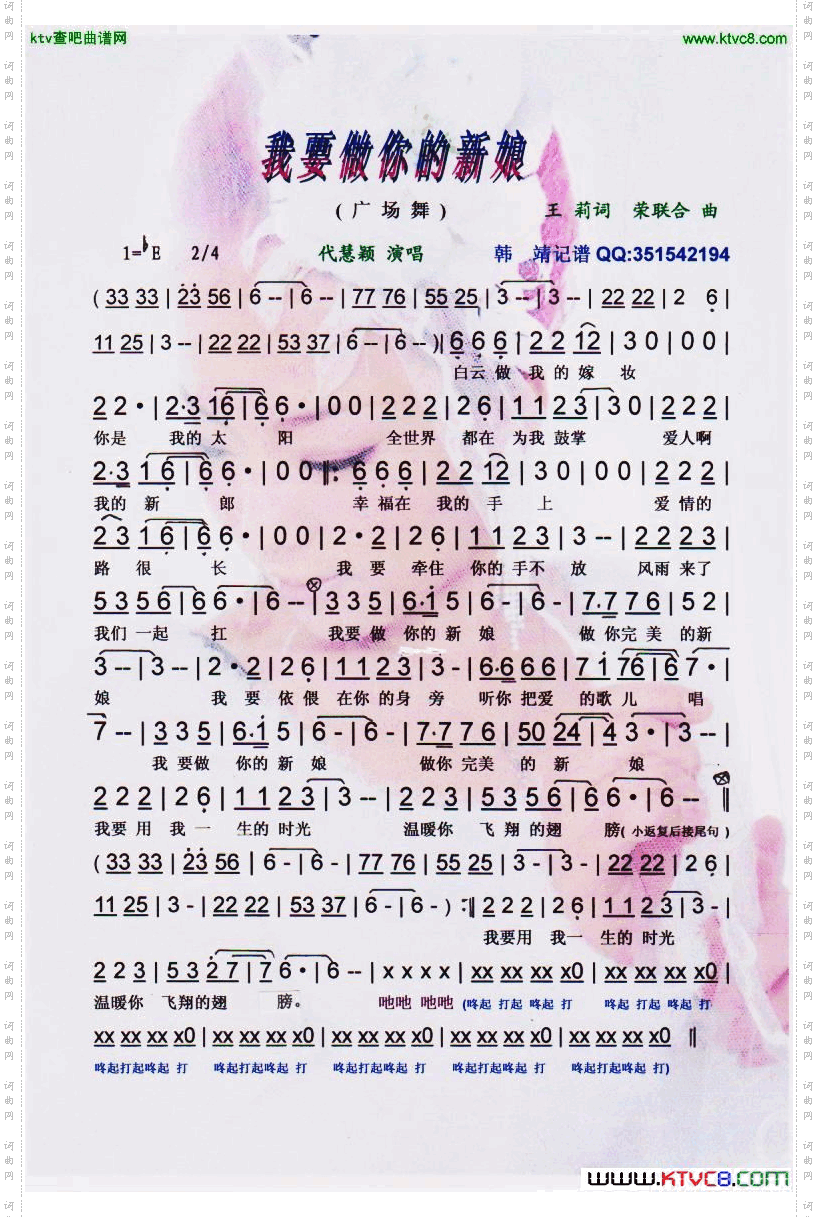 ktv查吧曲谱网 www.ktvc8.com
我要做你的新娘
(广场舞) 王 莉词 荣联合 曲
1=♭E 2/4 代慧颖 演唱 韩 靖记谱 QQ:351542194
( 33 33 | 23 56 | 6 -- | 6 -- | 77 76 | 55 25 | 3 -- | 3 -- | 22 22 | 2 6 |
11 25 | 3 -- | 22 22 | 53 37 | 6 -- | 6 -- )| 6 6 6 | 2 2 12 | 3 0 | 0 0 |
白云 做 我 的 嫁 妆
2 2 · | 2·3 16 | 6 6 · | 0 0 | 2 2 2 | 2 6 | 1 1 2 3 | 3 0 | 2 2 2 |
你是 我的 太 阳 全世界 都在 为我 鼓掌 爱人啊
2·3 1 6 | 6 6 · | 0 0 ‖: 6 6 6 | 2 2 12 | 3 0 | 0 0 | 2 2 2 |
我的 新 郎 幸 福在 我的 手 上 爱 情的
2 3 1 6 | 6 6 · | 0 0 | 2 · 2 | 2 6 | 1 1 2 3 | 3 -- | 2 2 2 3 |
路 很 长 我 要 牵住 你的 手不 放 风雨 来了
5 3 5 6 | 6 6 · | 6 -- | 3 3 5 | 6·1 5 | 6 - | 6 - | 7·7 7 6 | 5 2 |
我们 一起 扛 我要 做 你的 新 娘 做 你完 美 的新
3 -- | 3 -- | 2 · 2 | 2 6 | 1 1 2 3 | 3 - | 6·6 6 6 | 7 1 76 | 6 7 · |
娘 我 要 依 偎 在你 的身 旁 听你 把爱 的歌 儿 唱
7 -- | 3 3 5 | 6·1 5 | 6 - | 6 - | 7·7 7 6 | 50 24 | 4 3 · | 3 -- |
我 要做 你的 新 娘 做你 完美 的 新 娘
2 2 2 | 2 6 | 1 1 2 3 | 3 -- | 2 2 3 | 5 3 5 6 | 6 6 · | 6 -- ‖
我要 用 我 一 生的 时光 温暖你 飞 翔的翅 膀( 小返复后接尾句 )
( 33 33 | 23 56 | 6 - | 6 - | 77 76 | 55 25 | 3 - | 3 - | 22 22 | 2 6 |
11 25 | 3 - | 22 22 | 53 37 | 6 - | 6 - ) :‖ 2 2 2 | 2 6 | 1 1 2 3 | 3 - |
我要用 我一 生的 时光
2 2 3 | 5 3 2 7 | 7 6 · | 6 -- | x x x x | xx xx xx x0 | xx xx xx x0 |
温暖你 飞翔的翅 膀。 吔吔 吔吔 (咚起 打起 咚起 打 咚起 打起 咚起 打
xx xx xx x0 | xx xx xx x0 | xx xx xx x0 | xx xx xx x0 | xx xx xx x0 ‖
咚起打起咚起 打 咚起打起咚起 打 咚起打起咚起 打 咚起打起咚起 打 咚起打起咚起 打)
www.KTVC8.com